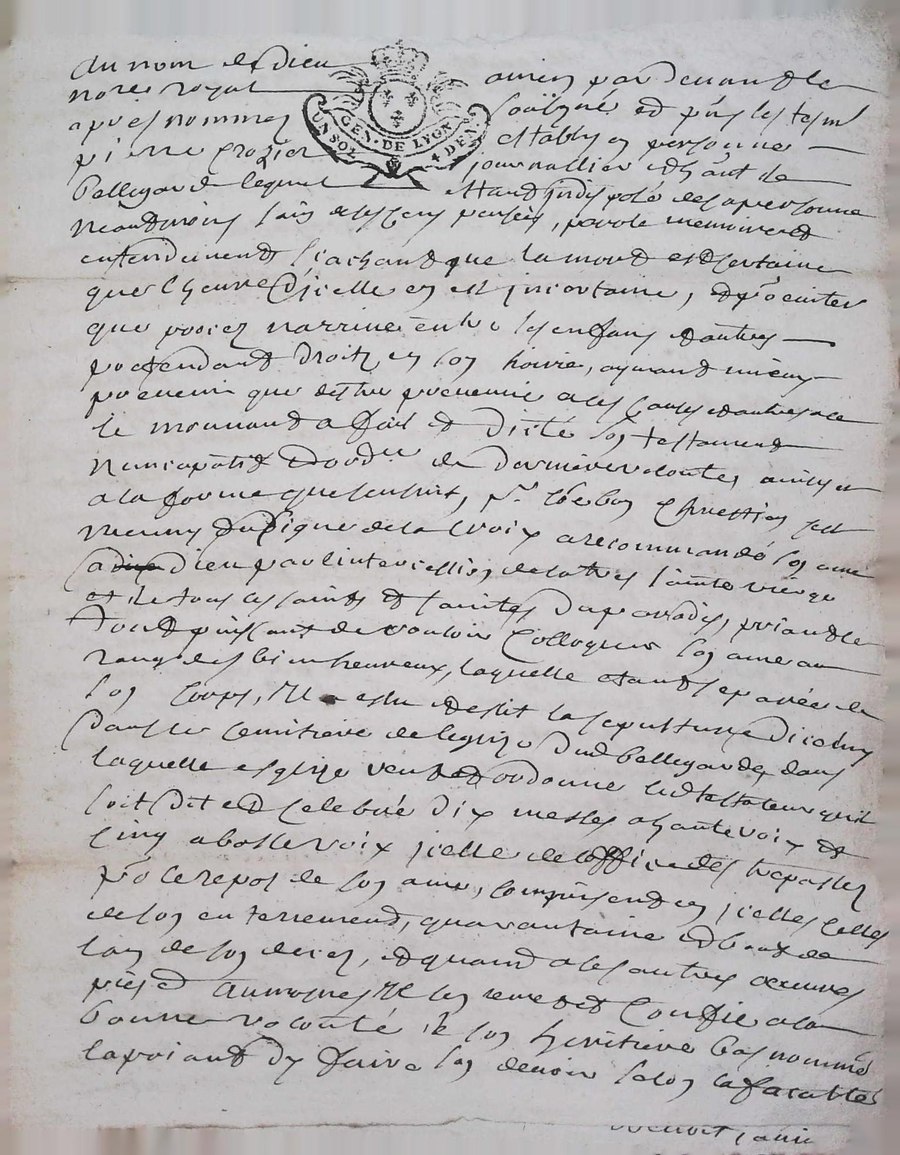 Au nom de Dieu amen par devant le
no.re royal soussigné et pns les tesm
après nommez estably en personne
pierre crozier journallier ehant de
Bellegarde lequel estant jndisposé de sa personne
neantmoins sain de ses sens pensées, parole memoire et
entendement sachant que la mort est certaine
que l'heure d'jcelle en est jncertaine, et po eviter
que procez n'arrive entre ses enfans et autres
pretendant droitz en son hoirie, aymant mieux
prevenir que destre prevenu a ces causes et autres a ce
le mouvant a fait et dicté son testament
nuncupatif et ordre de derniere volonté, ainsy et
a la forme que sensuit, P.r cõe bon Chrestien sest
muny du signe de la Croix a recommandé son ame
a Dieu par l'intercession de la tres sainte vierge
et de tous les saints et saintes du paradis, priant le
tout puissant de vouloir colloquer son ame au
rang des bienheureux, laquelle etant separée de
son corps, Il a eslu et elit la sepulture d'iceluy
dans le cemitiere de leglize dud Bellegarde, dans
laquelle esglize veut et ordonne led testateur quil
soit dit et celebré dix messes a haute voix et
cinq a basse voix jcelle de loffice des trepassez
po le repos de son ame, comprisend en jcelles celles
de son enterrement, quarantaine et bout de
lan de son decez, et quand a les autres œuvres
pies et aumosnes Il les remet et confie a la
bonne volonté de son heritiere bas nommé
la priant dy faire son devoir selon sa facultes
Benoit, anne